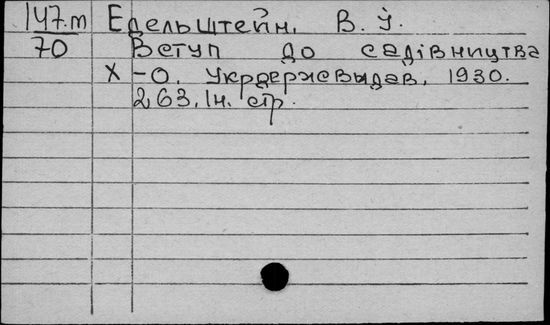 147.m Едельштейн, В. Й.
70 Вступ до садівництва
X -О. Укрдержвыдав, 1930.
263, Ін. стр.